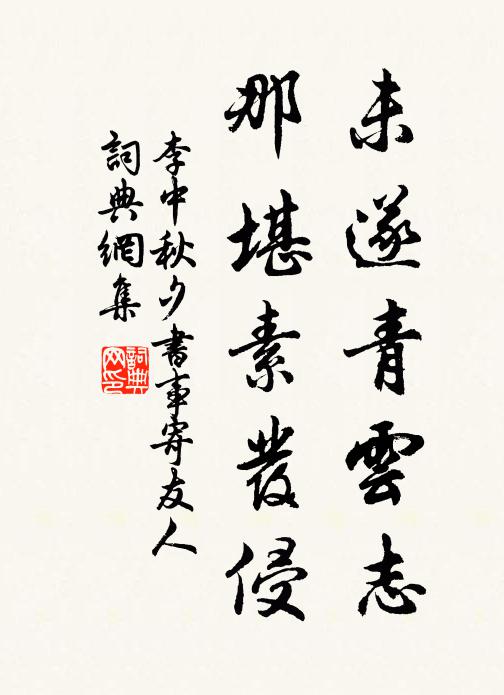 未遂青雲志
那堪素髮侵
李中秋夕書事寄友人
詞典網集
詞典
网印